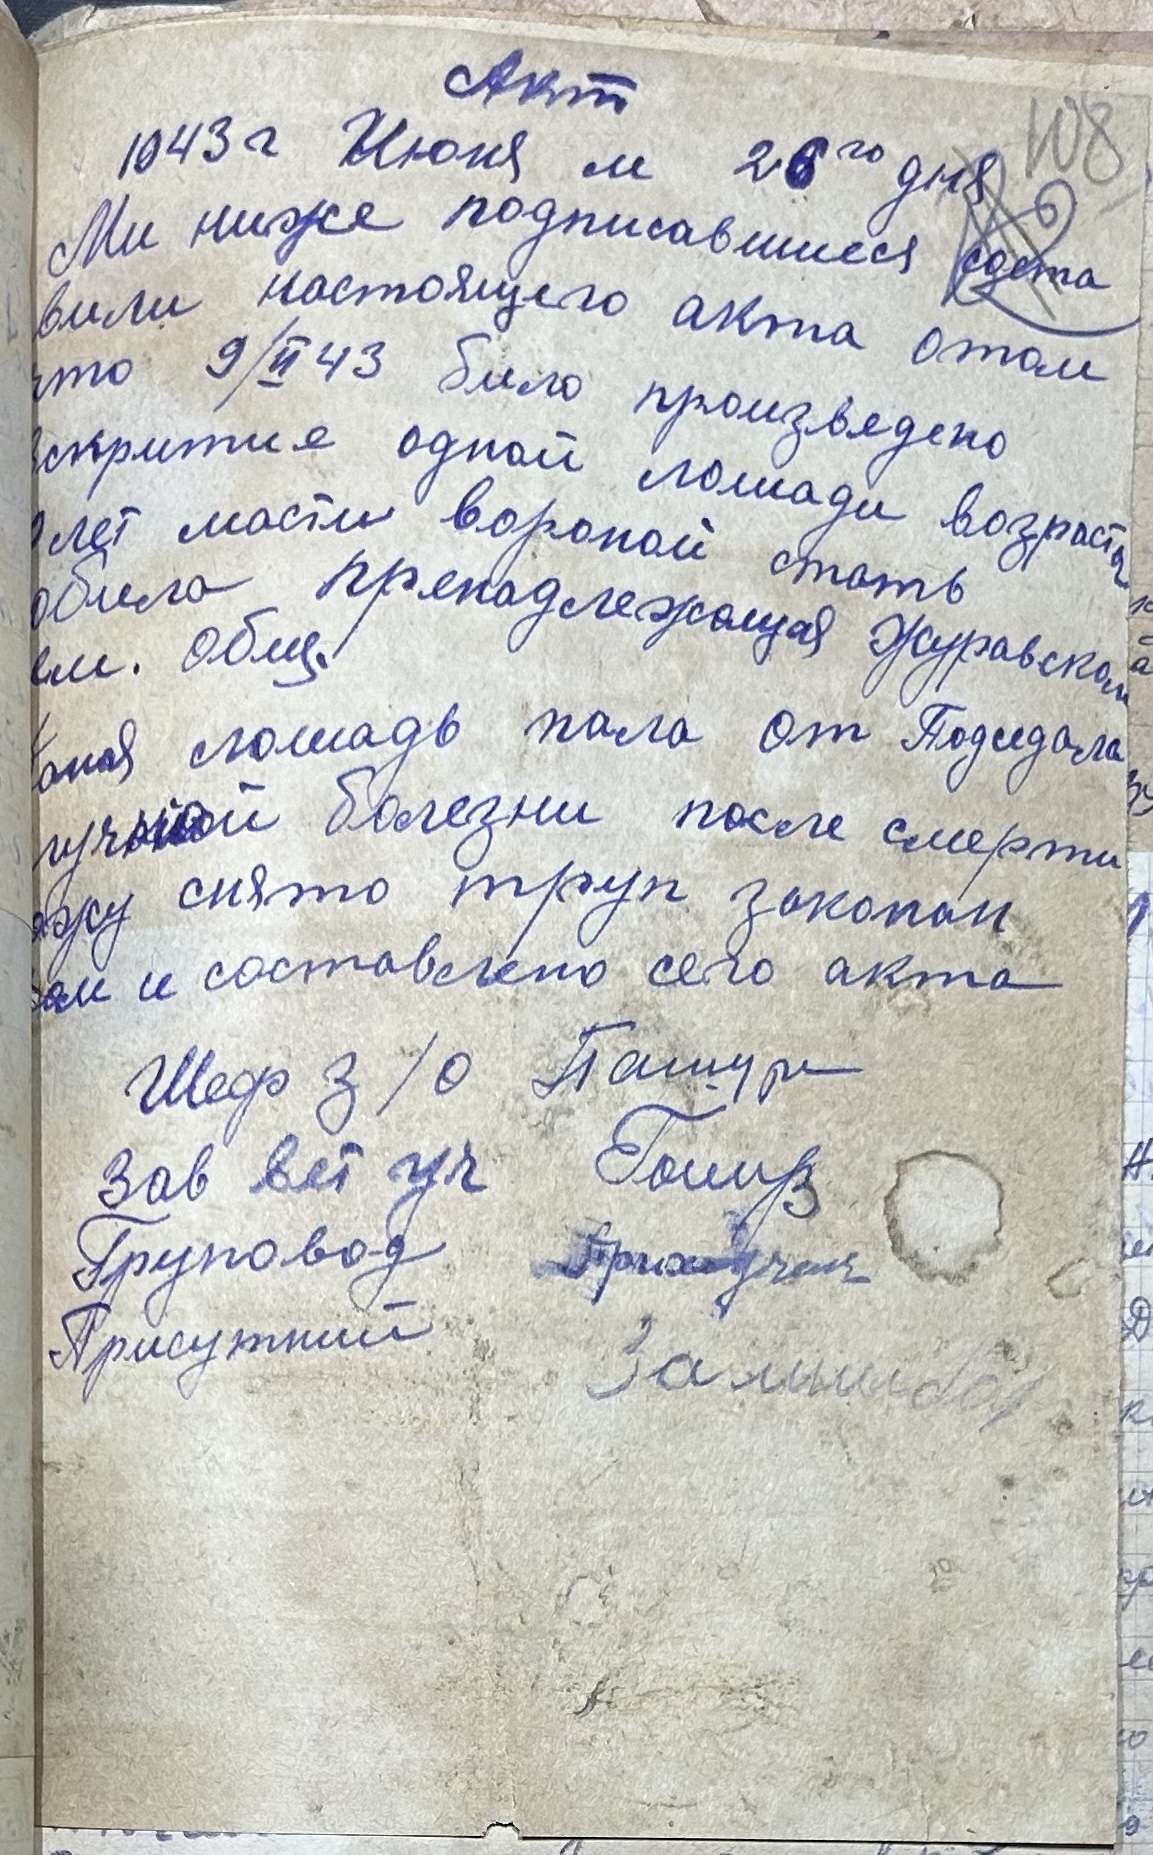 108
Акт
1943 г Июня м 26го дня
Ми ниже подписавшиеся соста
вили настоящего акта отом
что 9/II 43 било произведено
вскритие одной лошади возраста
лет масти вороной стать
кобила пренадлежащая Журавском
зем. общ.
лошадь пала от Подседала
болезни после смерти
кожу снято труп закопан
и составлено сего акта
Шеф з/о
Зав вет уч
Груповод
Присутний